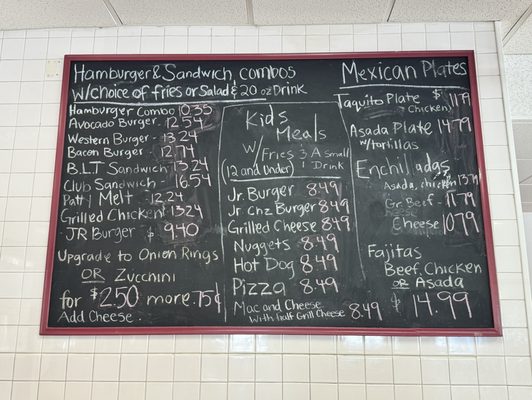 Hamburger & Sandwich combos
w/choice of fries or Salad & 20 oz Drink
Hamburger Combo 10.35
Avocado Burger 12.54
Western Burger - 13.24
Bacon Burger - 12.74
B.L.T Sandwich 13.24
Club Sandwich - 16.54
Patty Melt - 12.24
Grilled Chicken 13.24
JR Burger $ 9.40
Upgrade to Onion Rings
OR Zucchini
for $2.50 more 75¢
Add Cheese
Kids
Meals
w/Fries & A small
(12 and under) Drink
Jr. Burger 8.49
Jr Chz Burger 8.49
Grilled Cheese 8.49
Nuggets 8.49
Hot Dog 8.49
Pizza 8.49
Mac and Cheese
with half Grill Cheese 8.49
Mexican Plates
Taquito Plate $11.79
(Chicken)
Asada Plate 14.79
w/tortillas
Enchiladas
Asada, chicken 13.79
Gr. Beef 11.79
Cheese 10.79
Fajitas
Beef, Chicken
OR Asada
$14.99